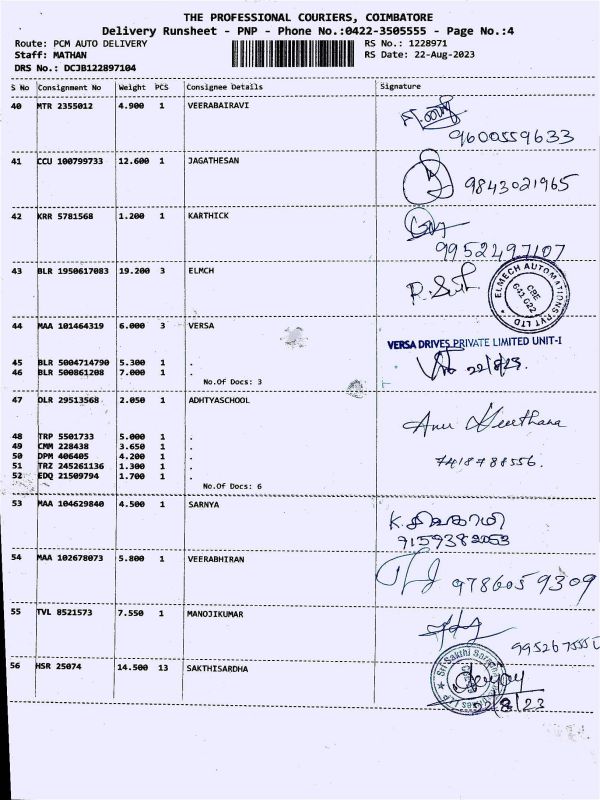 THE PROFESSIONAL COURIERS, COIMBATORE
Delivery Runsheet - PNP - Phone No.:0422-3505555 - Page No.:4
Route: PCM AUTO DELIVERY RS No.: 1228971
Staff: MATHAN RS Date: 22-Aug-2023
DRS No.: DCJB122897104
S No Consignment No Weight PCS Consignee Details Signature
40 MTR 2355012 4.900 1 VEERABAIRAVI
9600559633
41 CCU 100799733 12.600 1 JAGATHESAN
9843021965
42 KRR 5781568 1.200 1 KARTHICK
9952497107
43 BLR 1950617083 19.200 3 ELMCH
ELMECH AUTOMATIONS PVT LTD
CBE
641 022
44 MAA 101464319 6.000 3 VERSA
VERSA DRIVES PRIVATE LIMITED UNIT-I
45 BLR 5004714790 5.300 1 .
22/8/23.
46 BLR 500861208 7.000 1 .
No.Of Docs: 3
47 DLR 29513568 2.050 1 ADHTYASCHOOL
48 TRP 5501733 5.000 1 .
49 CMM 228438 3.650 1 .
50 DPM 406405 4.200 1 .
51 TRZ 245261136 1.300 1 .
52 EDQ 21509794 1.700 1 .
No.Of Docs: 6
53 MAA 104629840 4.500 1 SARNYA
54 MAA 102678073 5.800 1 VEERABHIRAN
9786059309
55 TVL 8521573 7.550 1 MANOJIKUMAR
56 HSR 25074 14.500 13 SAKTHISARDHA
Sri Sakthi
22/8/23